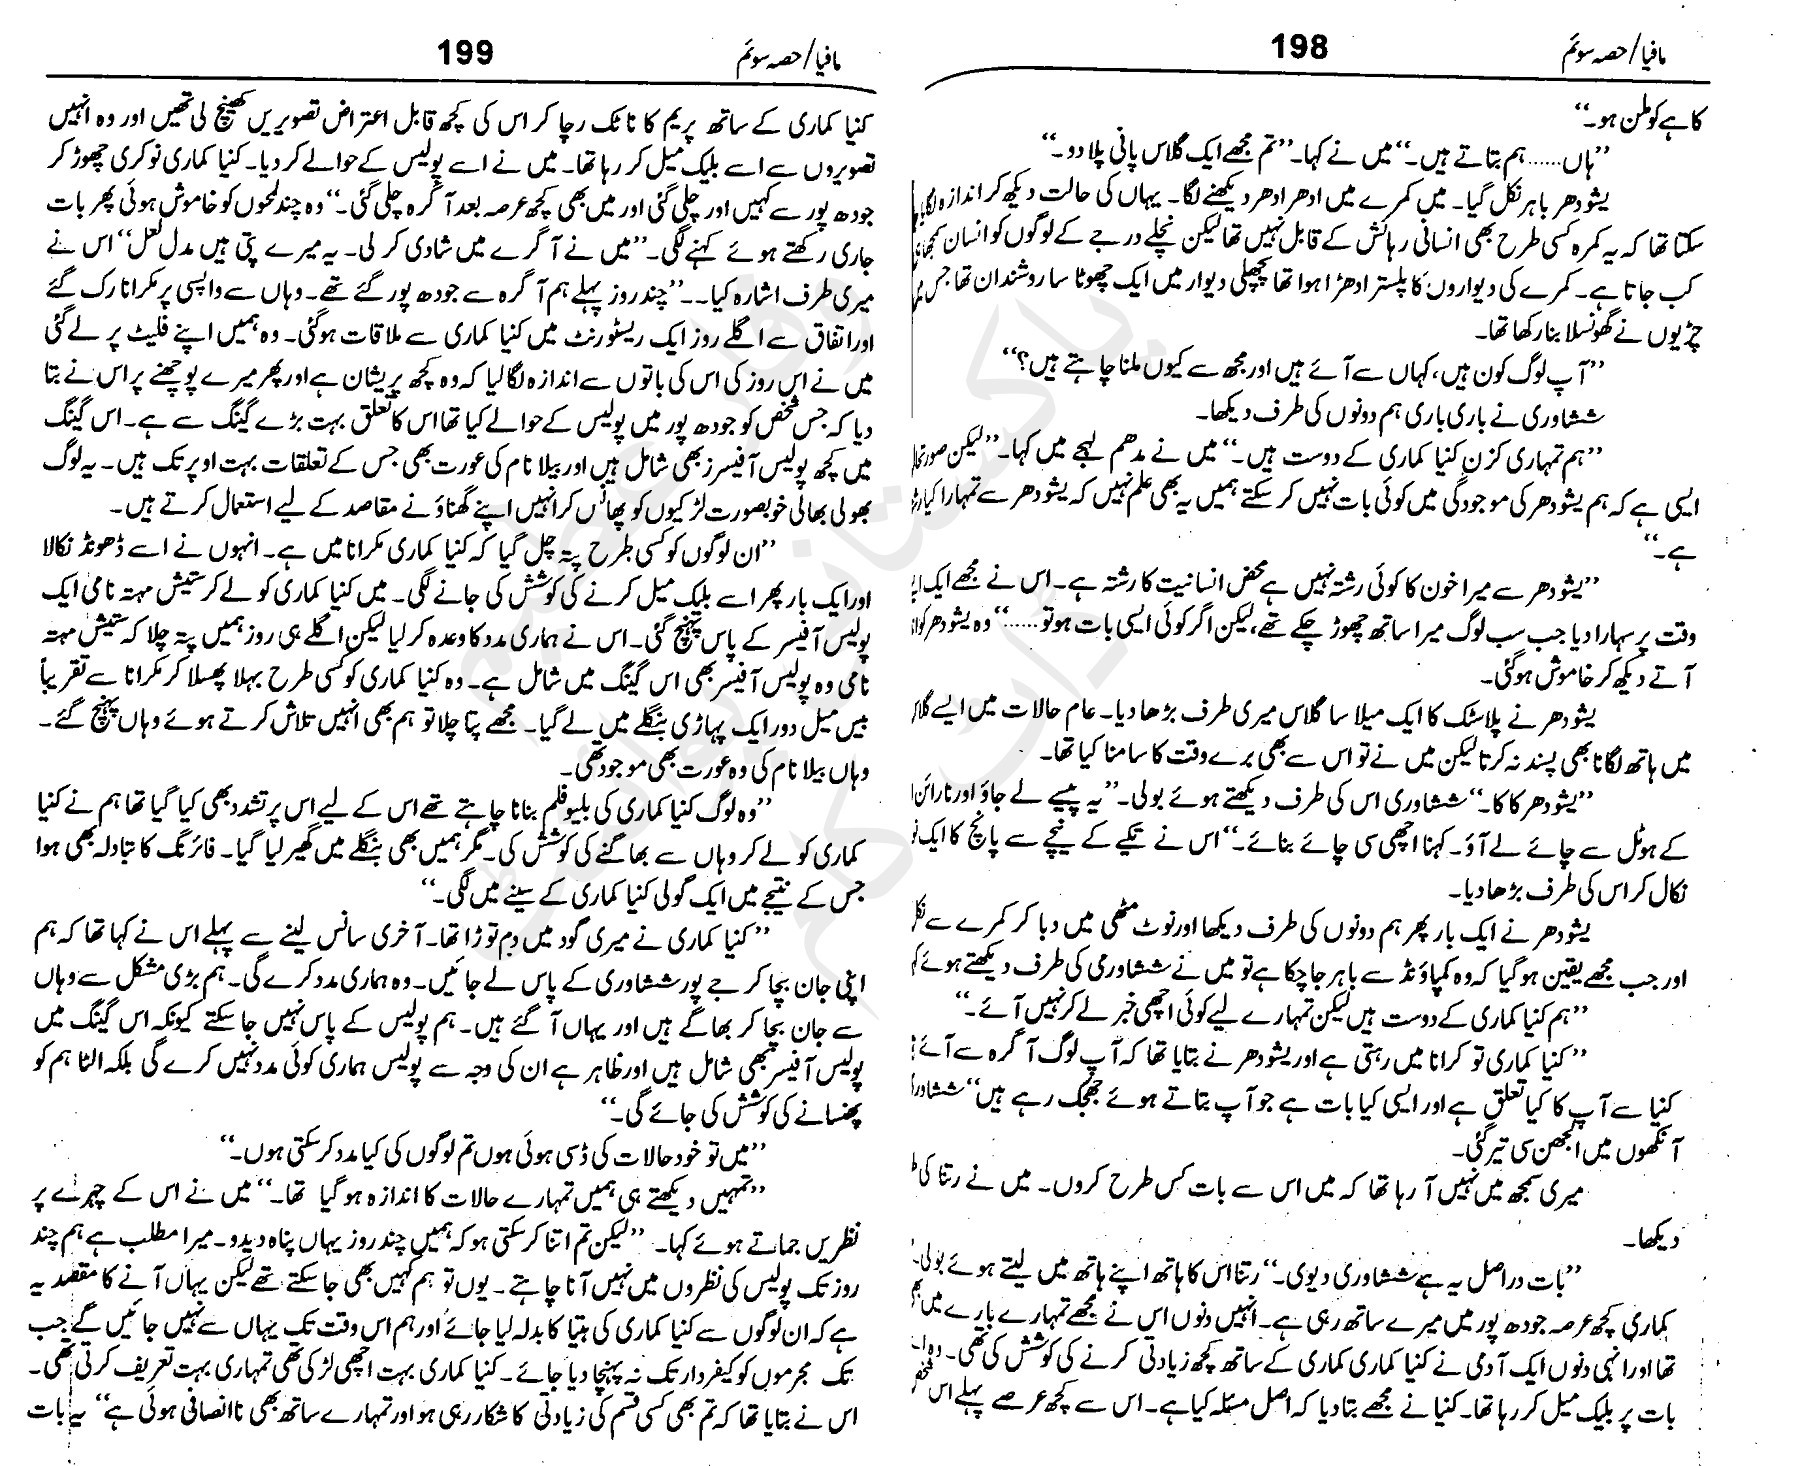 مافیا/حصہ سوئم
198
کاہے کو ملن ہو۔“
”ہاں...... ہم بتاتے ہیں۔“ میں نے کہا۔ ”تم مجھے ایک گلاس پانی پلا دو۔“
یشودھر باہر نکل گیا۔ میں کمرے میں ادھر ادھر دیکھنے لگا۔ یہاں کی حالت دیکھ کر اندازہ لگایا
سکتا تھا کہ یہ کمرہ کسی طرح بھی انسانی رہائش کے قابل نہیں تھا لیکن نچلے درجے کے لوگوں کو انسان سمجھا ہی
کب جاتا ہے۔ کمرے کی دیواروں کا پلستر ادھڑا ہوا تھا پچھلی دیوار میں ایک چھوٹا سا روشندان تھا جس
چڑیوں نے گھونسلا بنا رکھا تھا۔
”آپ لوگ کون ہیں، کہاں سے آئے ہیں اور مجھ سے کیوں ملنا چاہتے ہیں؟“
ششاوری نے باری باری ہم دونوں کی طرف دیکھا۔
”ہم تمہاری کزن کنیا کماری کے دوست ہیں۔“ میں نے مدھم لہجے میں کہا۔ ”لیکن
ایسی ہے کہ ہم یشودھر کی موجودگی میں کوئی بات نہیں کر سکتے ہمیں یہ بھی علم نہیں کہ یشودھر سے تمہارا کیا
ہے۔“
”یشودھر سے میرا خون کا کوئی رشتہ نہیں ہے محض انسانیت کا رشتہ ہے۔ اس نے مجھے ایک
وقت پر سہارا دیا جب سب لوگ میرا ساتھ چھوڑ چکے تھے، لیکن اگر کوئی ایسی بات ہو تو......“ وہ یشودھر کو
آتے دیکھ کر خاموش ہو گئی۔
یشودھر نے پلاسٹک کا ایک میلا سا گلاس میری طرف بڑھا دیا۔ عام حالات میں ایسے گلاس
میں ہاتھ لگانا بھی پسند نہ کرتا لیکن میں نے تو اس سے بھی برے وقت کا سامنا کیا تھا۔
”یشودھر کاکا۔“ ششاوری اس کی طرف دیکھتے ہوئے بولی۔ ”یہ پیسے لے جاؤ اور نارائن
کے ہوٹل سے چائے لے آؤ۔ کہنا اچھی سی چائے بنائے۔“ اس نے تکیے کے نیچے سے پانچ کا ایک
نکال کر اس کی طرف بڑھا دیا۔
یشودھر نے ایک بار پھر ہم دونوں کی طرف دیکھا اور نوٹ مٹھی میں دبا کر کمرے سے
اور جب مجھے یقین ہو گیا کہ وہ کمپاؤنڈ سے باہر جا چکا ہے تو میں نے ششاوری کی طرف دیکھتے ہوئے
”ہم کنیا کماری کے دوست ہیں لیکن تمہارے لیے کوئی اچھی خبر لے کر نہیں آئے۔“
”کنیا کماری تو کرانا میں رہتی ہے اور یشودھر نے بتایا تھا کہ آپ لوگ آگرہ سے آئے
کنیا سے آپ کا کیا تعلق ہے اور ایسی کیا بات ہے جو آپ بتاتے ہوئے جھجک رہے ہیں“
آنکھوں میں الجھن سی تیر گئی۔
میری سمجھ میں نہیں آ رہا تھا کہ میں اس سے بات کس طرح کروں۔ میں نے رتنا کی
دیکھا۔
”بات دراصل یہ ہے ششاوری دیوی۔“ رتنا اس کا ہاتھ اپنے ہاتھ میں لیتے ہوئے بولی۔
کماری کچھ عرصہ جودھ پور میں میرے ساتھ رہی ہے۔ انہیں دنوں اس نے مجھے تمہارے بارے میں
تھا اور انہی دنوں ایک آدمی نے کنیا کماری کماری کے ساتھ کچھ زیادتی کرنے کی کوشش کی تھی۔
بات پر بلیک میل کر رہا تھا۔ کنیا نے مجھے بتا دیا کہ اصل مسئلہ کیا ہے۔ اس سے کچھ عرصے پہلے اس
مافیا/حصہ سوئم
199
کنیا کماری کے ساتھ پریم کا ناٹک رچا کر اس کی کچھ قابل اعتراض تصویریں کھینچ لی تھیں اور وہ انہیں
تصویروں سے اسے بلیک میل کر رہا تھا۔ میں نے اسے پولیس کے حوالے کر دیا۔ کنیا کماری نوکری چھوڑ کر
جودھ پور سے کہیں اور چلی گئی اور میں بھی کچھ عرصہ بعد آگرہ چلی گئی۔“ وہ چند لمحوں کو خاموش ہوئی پھر بات
جاری رکھتے ہوئے کہنے لگی۔ ”میں نے آگرے میں شادی کر لی۔ یہ میرے پتی ہیں مدل لعل“ اس نے
میری طرف اشارہ کیا۔۔ ”چند روز پہلے ہم آگرہ سے جودھ پور گئے تھے۔ وہاں سے واپسی پر مکرانا رک گئے
اور اتفاق سے اگلے روز ایک ریسٹورنٹ میں کنیا کماری سے ملاقات ہو گئی۔ وہ ہمیں اپنے فلیٹ پر لے گئی
میں نے اس روز کی اس کی باتوں سے اندازہ لگا لیا کہ وہ کچھ پریشان ہے اور پھر میرے پوچھنے پر اس نے بتا
دیا کہ جس شخص کو جودھ پور میں پولیس کے حوالے کیا تھا اس کا تعلق بہت بڑے گینگ سے ہے۔ اس گینگ
میں کچھ پولیس آفیسرز بھی شامل ہیں اور بیلا نام کی عورت بھی جس کے تعلقات بہت اوپر تک ہیں۔ یہ لوگ
بھولی بھالی خوبصورت لڑکیوں کو پھانس کر انہیں اپنے گھناؤنے مقاصد کے لیے استعمال کرتے ہیں۔
”ان لوگوں کو کسی طرح پتہ چل گیا کہ کنیا کماری مکرانا میں ہے۔ انہوں نے اسے ڈھونڈ نکالا
اور ایک بار پھر اسے بلیک میل کرنے کی کوشش کی جانے لگی۔ میں کنیا کماری کو لے کر ستیش مہتہ نامی ایک
پولیس آفیسر کے پاس پہنچ گئی۔ اس نے ہماری مدد کا وعدہ کر لیا لیکن اگلے ہی روز ہمیں پتہ چلا کہ ستیش مہتہ
نامی وہ پولیس آفیسر بھی اس گینگ میں شامل ہے۔ وہ کنیا کماری کو کسی طرح بہلا پھسلا کر مکرانا سے تقریباً
بیس میل دور ایک پہاڑی بنگلے میں لے گیا۔ مجھے پتا چلا تو ہم بھی انہیں تلاش کرتے ہوئے وہاں پہنچ گئے۔
وہاں بیلا نام کی وہ عورت بھی موجود تھی۔
”وہ لوگ کنیا کماری کی بلیو فلم بنانا چاہتے تھے اس کے لیے اس پر تشدد بھی کیا گیا تھا ہم نے کنیا
کماری کو لے کر وہاں سے بھاگنے کی کوشش کی۔ مگر ہمیں بھی بنگلے میں گھیر لیا گیا۔ فائرنگ کا تبادلہ بھی ہوا
جس کے نتیجے میں ایک گولی کنیا کماری کے سینے میں لگی۔“
”کنیا کماری نے میری گود میں دم توڑا تھا۔ آخری سانس لینے سے پہلے اس نے کہا تھا کہ ہم
اپنی جان بچا کر جے پور ششاوری کے پاس لے جائیں۔ وہ ہماری مدد کرے گی۔ ہم بڑی مشکل سے وہاں
سے جان بچا کر بھاگے ہیں اور یہاں آ گئے ہیں۔ ہم پولیس کے پاس نہیں جا سکتے کیونکہ اس گینگ میں
پولیس آفیسر بھی شامل ہیں اور ظاہر ہے ان کی وجہ سے پولیس ہماری کوئی مدد نہیں کرے گی بلکہ الٹا ہم کو
پھنسانے کی کوشش کی جائے گی۔“
”میں تو خود حالات کی ڈسی ہوئی ہوں تم لوگوں کی کیا مدد کر سکتی ہوں۔“
”تمہیں دیکھتے ہی ہمیں تمہارے حالات کا اندازہ ہو گیا تھا۔“ میں نے اس کے چہرے پر
نظریں جماتے ہوئے کہا۔ ”لیکن تم اتنا کر سکتی ہو کہ ہمیں چند روز یہاں پناہ دیدو۔ میرا مطلب ہے ہم چند
روز تک پولیس کی نظروں میں نہیں آنا چاہتے۔ یوں تو ہم کہیں بھی جا سکتے تھے لیکن یہاں آنے کا مقصد یہ
ہے کہ ان لوگوں سے کنیا کماری کی ہتیا کا بدلہ لیا جائے اور ہم اس وقت تک یہاں سے نہیں جائیں گے جب
تک مجرموں کو کیفر دار تک نہ پہنچا دیا جائے۔ کنیا کماری بہت اچھی لڑکی تھی تمہاری بہت تعریف کرتی تھی۔
اس نے بتایا تھا کہ تم بھی کسی قسم کی زیادتی کا شکار رہی ہو اور تمہارے ساتھ بھی ناانصافی ہوئی ہے“ یہ بات